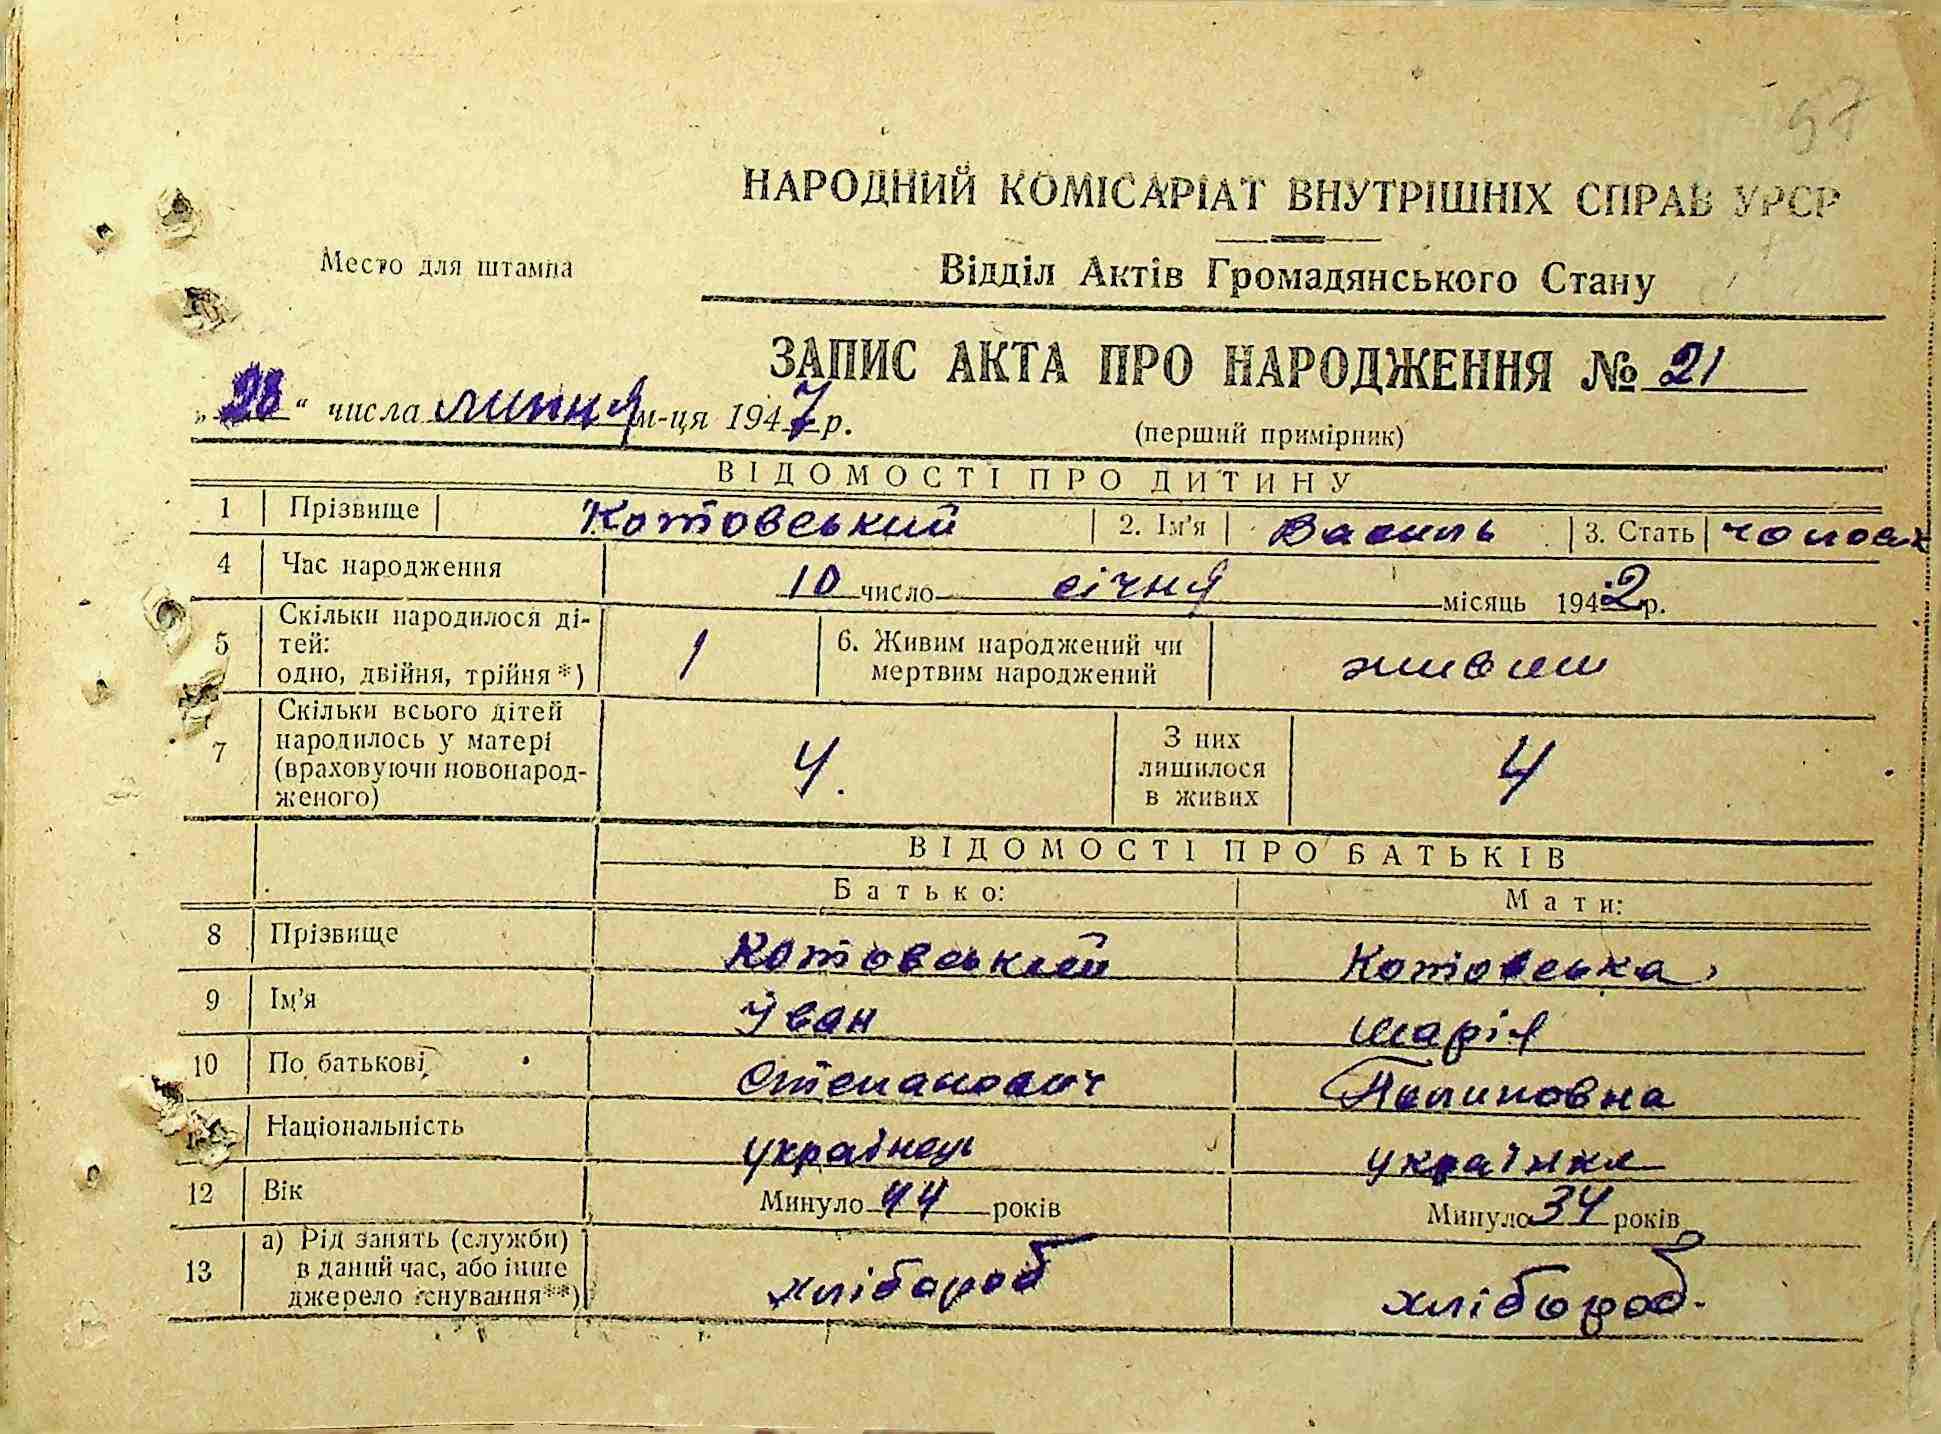 57
НАРОДНИЙ КОМІСАРІАТ ВНУТРІШНІХ СПРАВ УРСР
Место для штампа
Відділ Актів Громадянського Стану
ЗАПИС АКТА ПРО НАРОДЖЕННЯ № 21
„28“ числа липня м-ця 1947 р.
(перший примірник)
ВІДОМОСТІ ПРО ДИТИНУ
1 Прізвище Котовський 2. Ім'я Василь 3. Стать чоловіч
4 Час народження 10 число січня місяць 1942 р.
5 Скільки народилося ді-
тей:
одно, двійня, трійня *) 1 6. Живим народжений чи
мертвим народжений живим
7 Скільки всього дітей
народилось у матері
(враховуючи новонарод-
женого) 4. З них
лишилося
в живих 4
ВІДОМОСТІ ПРО БАТЬКІВ
Батько: Мати:
8 Прізвище Котовський Котовська
9 Ім'я Іван Марія
10 По батькові Степанович
Національність українець українка
12 Вік Минуло 44 років Минуло 34 років
13 а) Рід занять (служби)
в даний час, або інше
джерело існування**) хлібороб хлібороб.